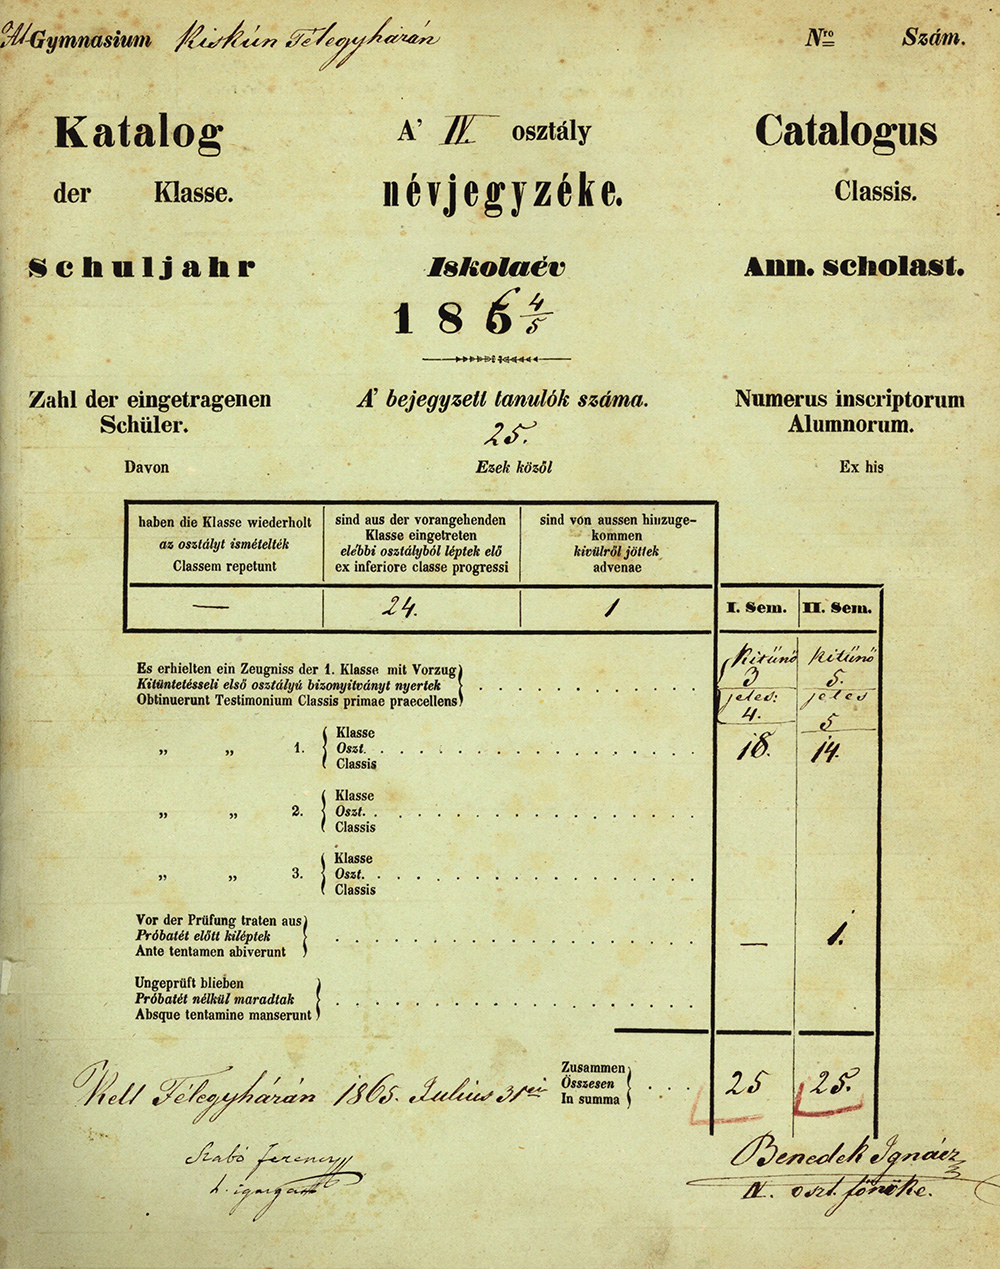 Al Gymnasium Kiskún Félegyházán Nro Szám.
Katalog A' IV. osztály Catalogus
der Klasse. névjegyzéke. Classis.
Schuljahr Iskolaév Ann. scholast.
186 4/5
Zahl der eingetragenen Schüler. A' bejegyzett tanulók száma. Numerus inscriptorum Alumnorum.
25.
Davon Ezek közől Ex his
haben die Klasse wiederholt
az osztályt ismételték
Classem repetunt
sind aus der vorangehenden
Klasse eingetreten
elébbi osztályból léptek elő
ex inferiore classe progressi
sind von aussen hinzuge-
kommen
kivülről jöttek
advenae
— 24. 1
I. Sem. II. Sem.
Es erhielten ein Zeugniss der 1. Klasse mit Vorzug
Kitüntetésseli első osztályú bizonyitványt nyertek
Obtinuerunt Testimonium Classis primae praecellens
kitünő kitünő
3 5.
jeles: jeles
4. 5
„ „ 1. Klasse
Oszt. 18. 14.
Classis
„ „ 2. Klasse
Oszt.
Classis
„ „ 3. Klasse
Oszt.
Classis
Vor der Prüfung traten aus
Próbatét előtt kiléptek — 1.
Ante tentamen abiverunt
Ungeprüft blieben
Próbatét nélkül maradtak
Absque tentamine manserunt
Zusammen
Összesen 25 25.
In summa
Kelt Félegyházán 1865. Julius 31én
Szabó Ferencz
h. igazgató
Benedek Ignácz
IV. oszt. főnöke.